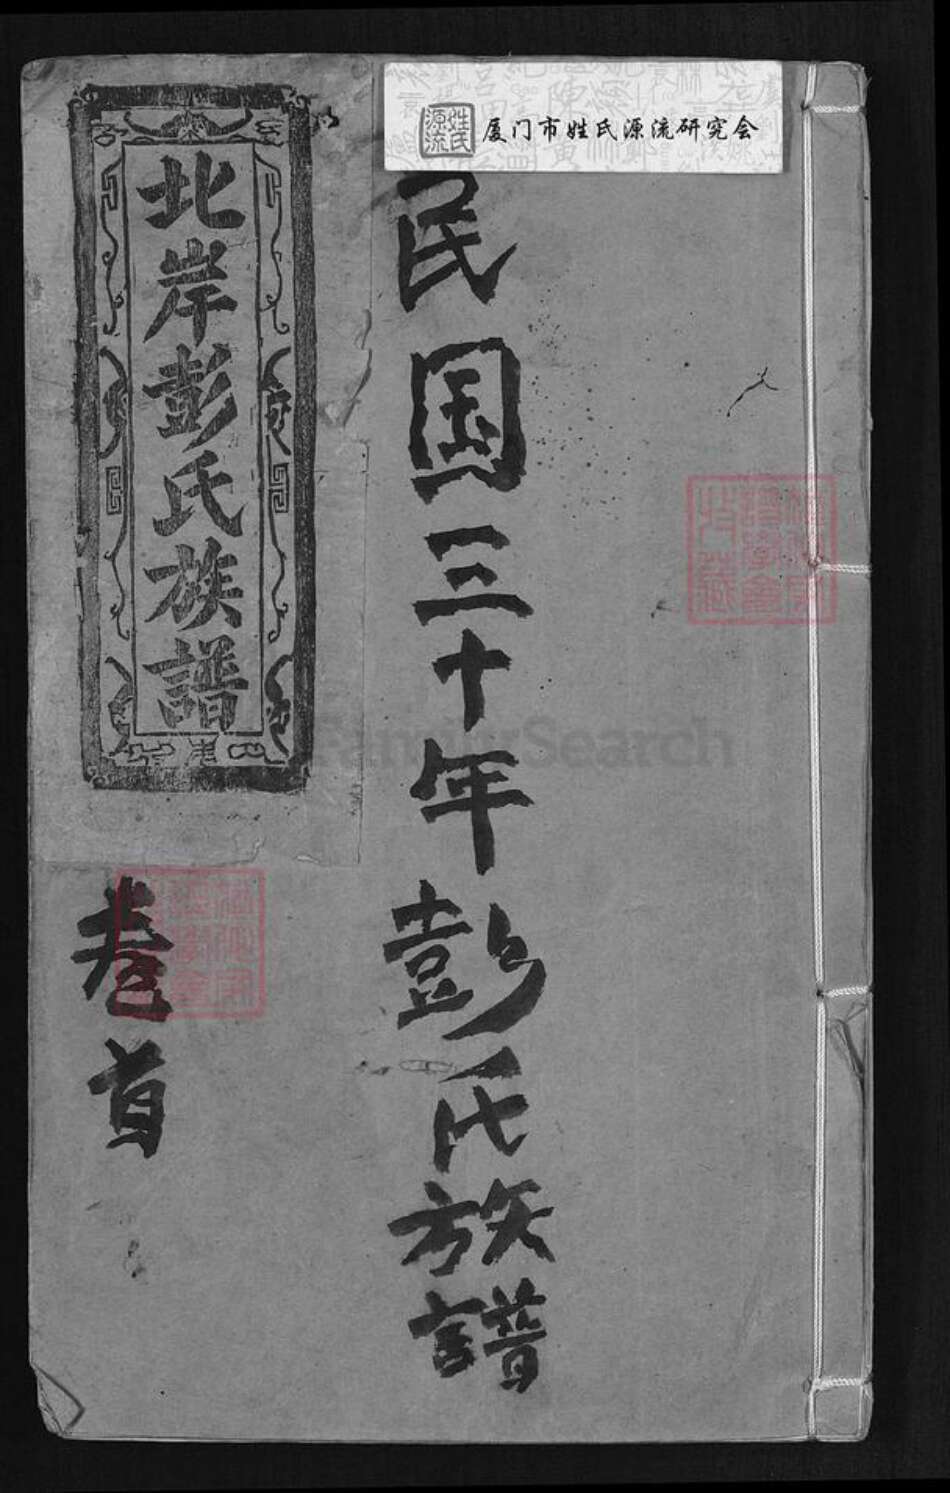 姓氏源流
厦门市姓氏源流研究会
民国三十年彭氏族譜
北岸彭氏族譜
卷首
FamilySearch